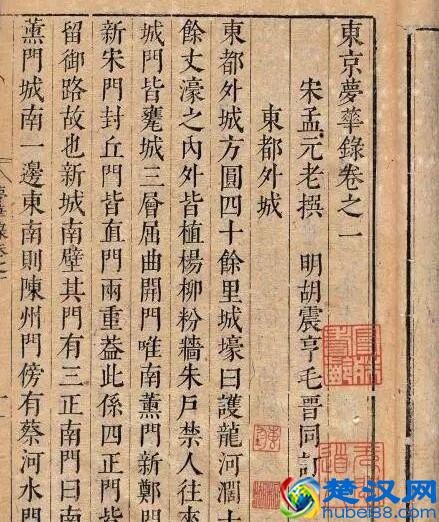 東京夢華錄卷之一
宋孟元老撰 明胡震亨毛晉同訂
東都外城
東都外城方圓四十餘里城壕曰護龍河濶十
餘丈濠之內外皆植楊柳粉牆朱戶禁人往來
城門皆甕城三層屈曲開門唯南薰門新鄭門
新宋門封丘門皆直門兩重葢此係四正門皆
留御路故也新城南壁其門有三正南門曰南
薰門城南一邊東南則陳州門傍有蔡河水門
楚汉网
hubei88.com